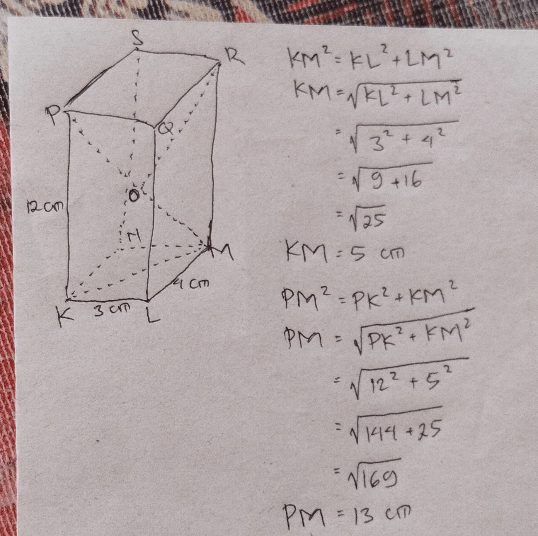 S
R
P
Q
O
12 cm
N
M
4 cm
K
3 cm
L
KM² = KL² + LM²
KM = √KL² + LM²
= √3² + 4²
= √9 + 16
= √25
KM = 5 cm
PM² = PK² + KM²
PM = √PK² + KM²
= √12² + 5²
= √144 + 25
= √169
PM = 13 cm